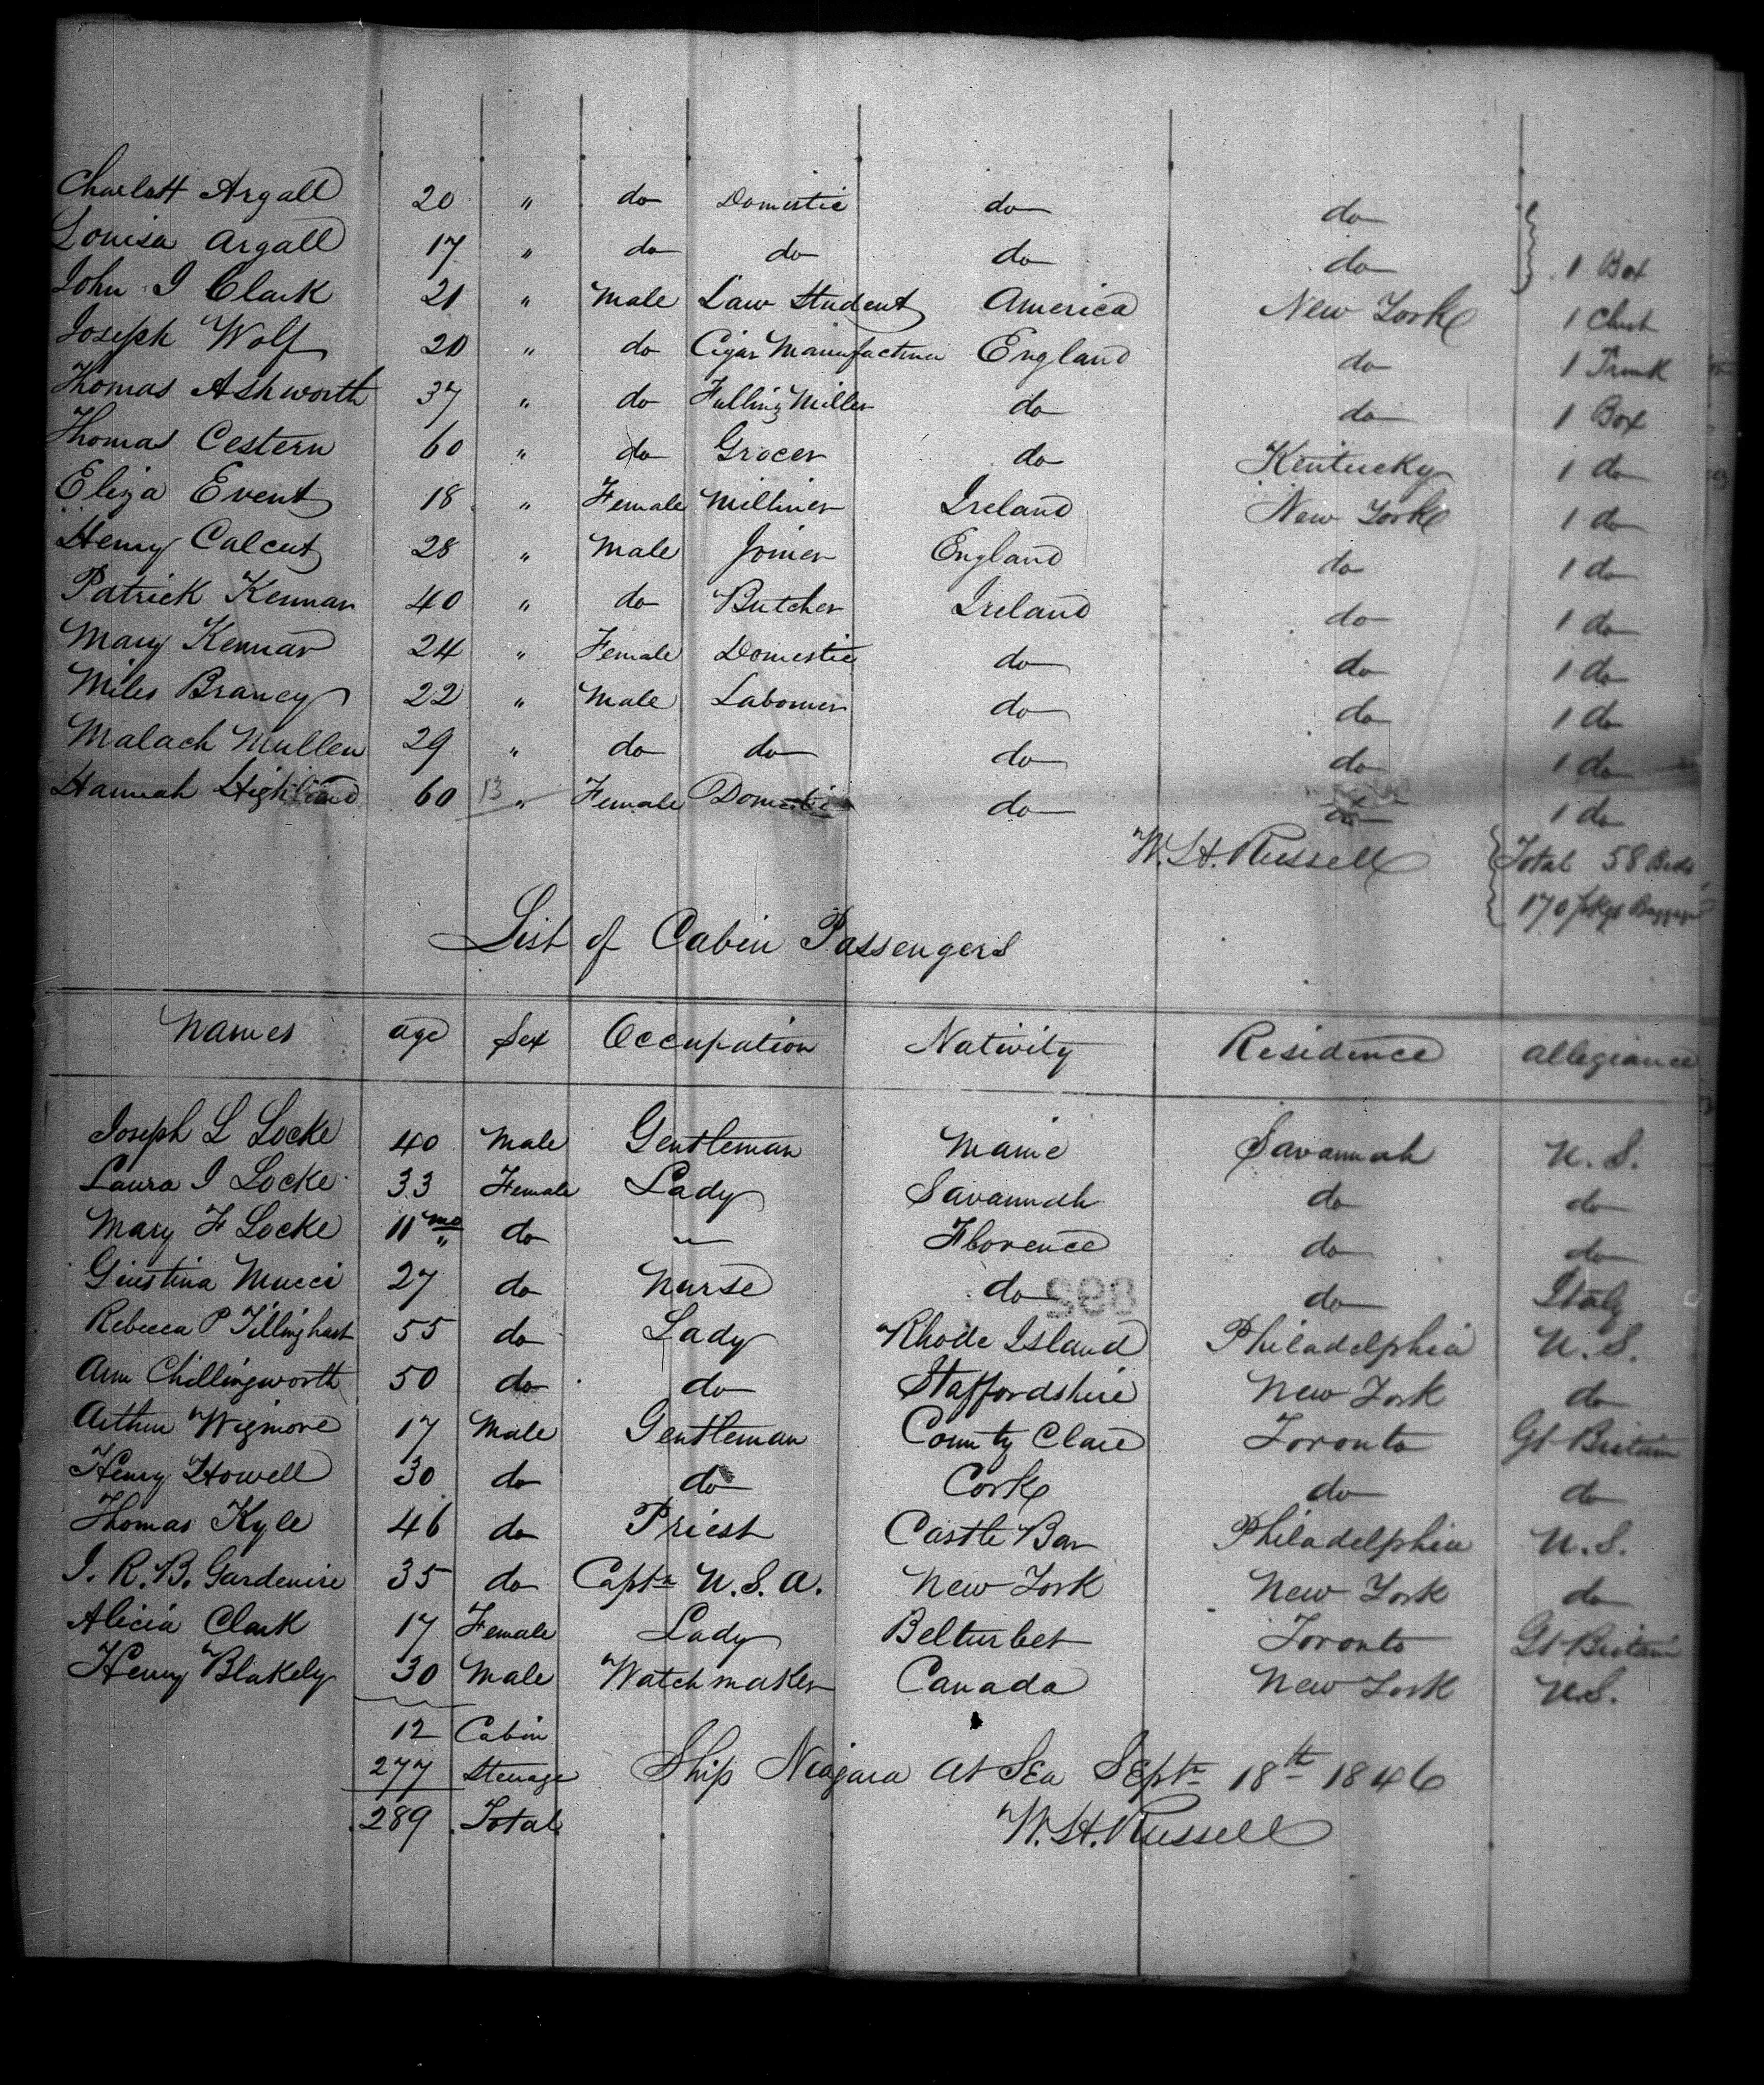 Charlott Argall 20 " do Domestic do do
Louisa Argall 17 " do do do do 1 Box
John I Clark 21 " Male Law Student America New York 1 Chest
Joseph Wolf 20 " do Cigar Manufacturer England do 1 Trunk
Thomas Ashworth 37 " do Fulling Miller do do 1 Box
Thomas Cestern 60 " do Grocer do Kentucky 1 do
Eliza Event 18 " Female Milliner Ireland New York 1 do
Henry Calcut 28 " Male Joiner England do 1 do
Patrick Kennan 40 " do Butcher Ireland do 1 do
Mary Kennan 24 " Female Domestic do do 1 do
Miles Brancy 22 " Male Labourer do do 1 do
Malach Mullen 29 " do do do do 1 do
Hannah Highland 60 13 " Female Domestic do do 1 do
W. H. Russell Total 58 Beds
170 pkgs Baggage
List of Cabin Passengers
Names age Sex Occupation Nativity Residence Allegiance
Joseph L Locke 40 Male Gentleman Maine Savannah U.S.
Laura I Locke 33 Female Lady Savannah do do
Mary F Locke 11 mo " do — Florence do do
Giustina Mucci 27 do Nurse do do Italy
Rebecca P Tillinghast 55 do Lady Rhode Island Philadelphia U.S.
Ann Chillingworth 50 do do Staffordshire New York do
Arthur Wigmore 17 Male Gentleman County Clare Toronto Gt Britain
Henry Howell 30 do do Cork do do
Thomas Kyle 46 do Priest Castle Bar Philadelphia U.S.
I. R. B. Gardenire 35 do Captn U.S.A. New York New York do
Alicia Clark 17 Female Lady Belturbet Toronto Gt Britain
Henry Blakely 30 Male Watchmaker Canada New York U.S.
12 Cabin
277 Steerage Ship Niagara at Sea Septr 18th 1846
289 Total W. H. Russell